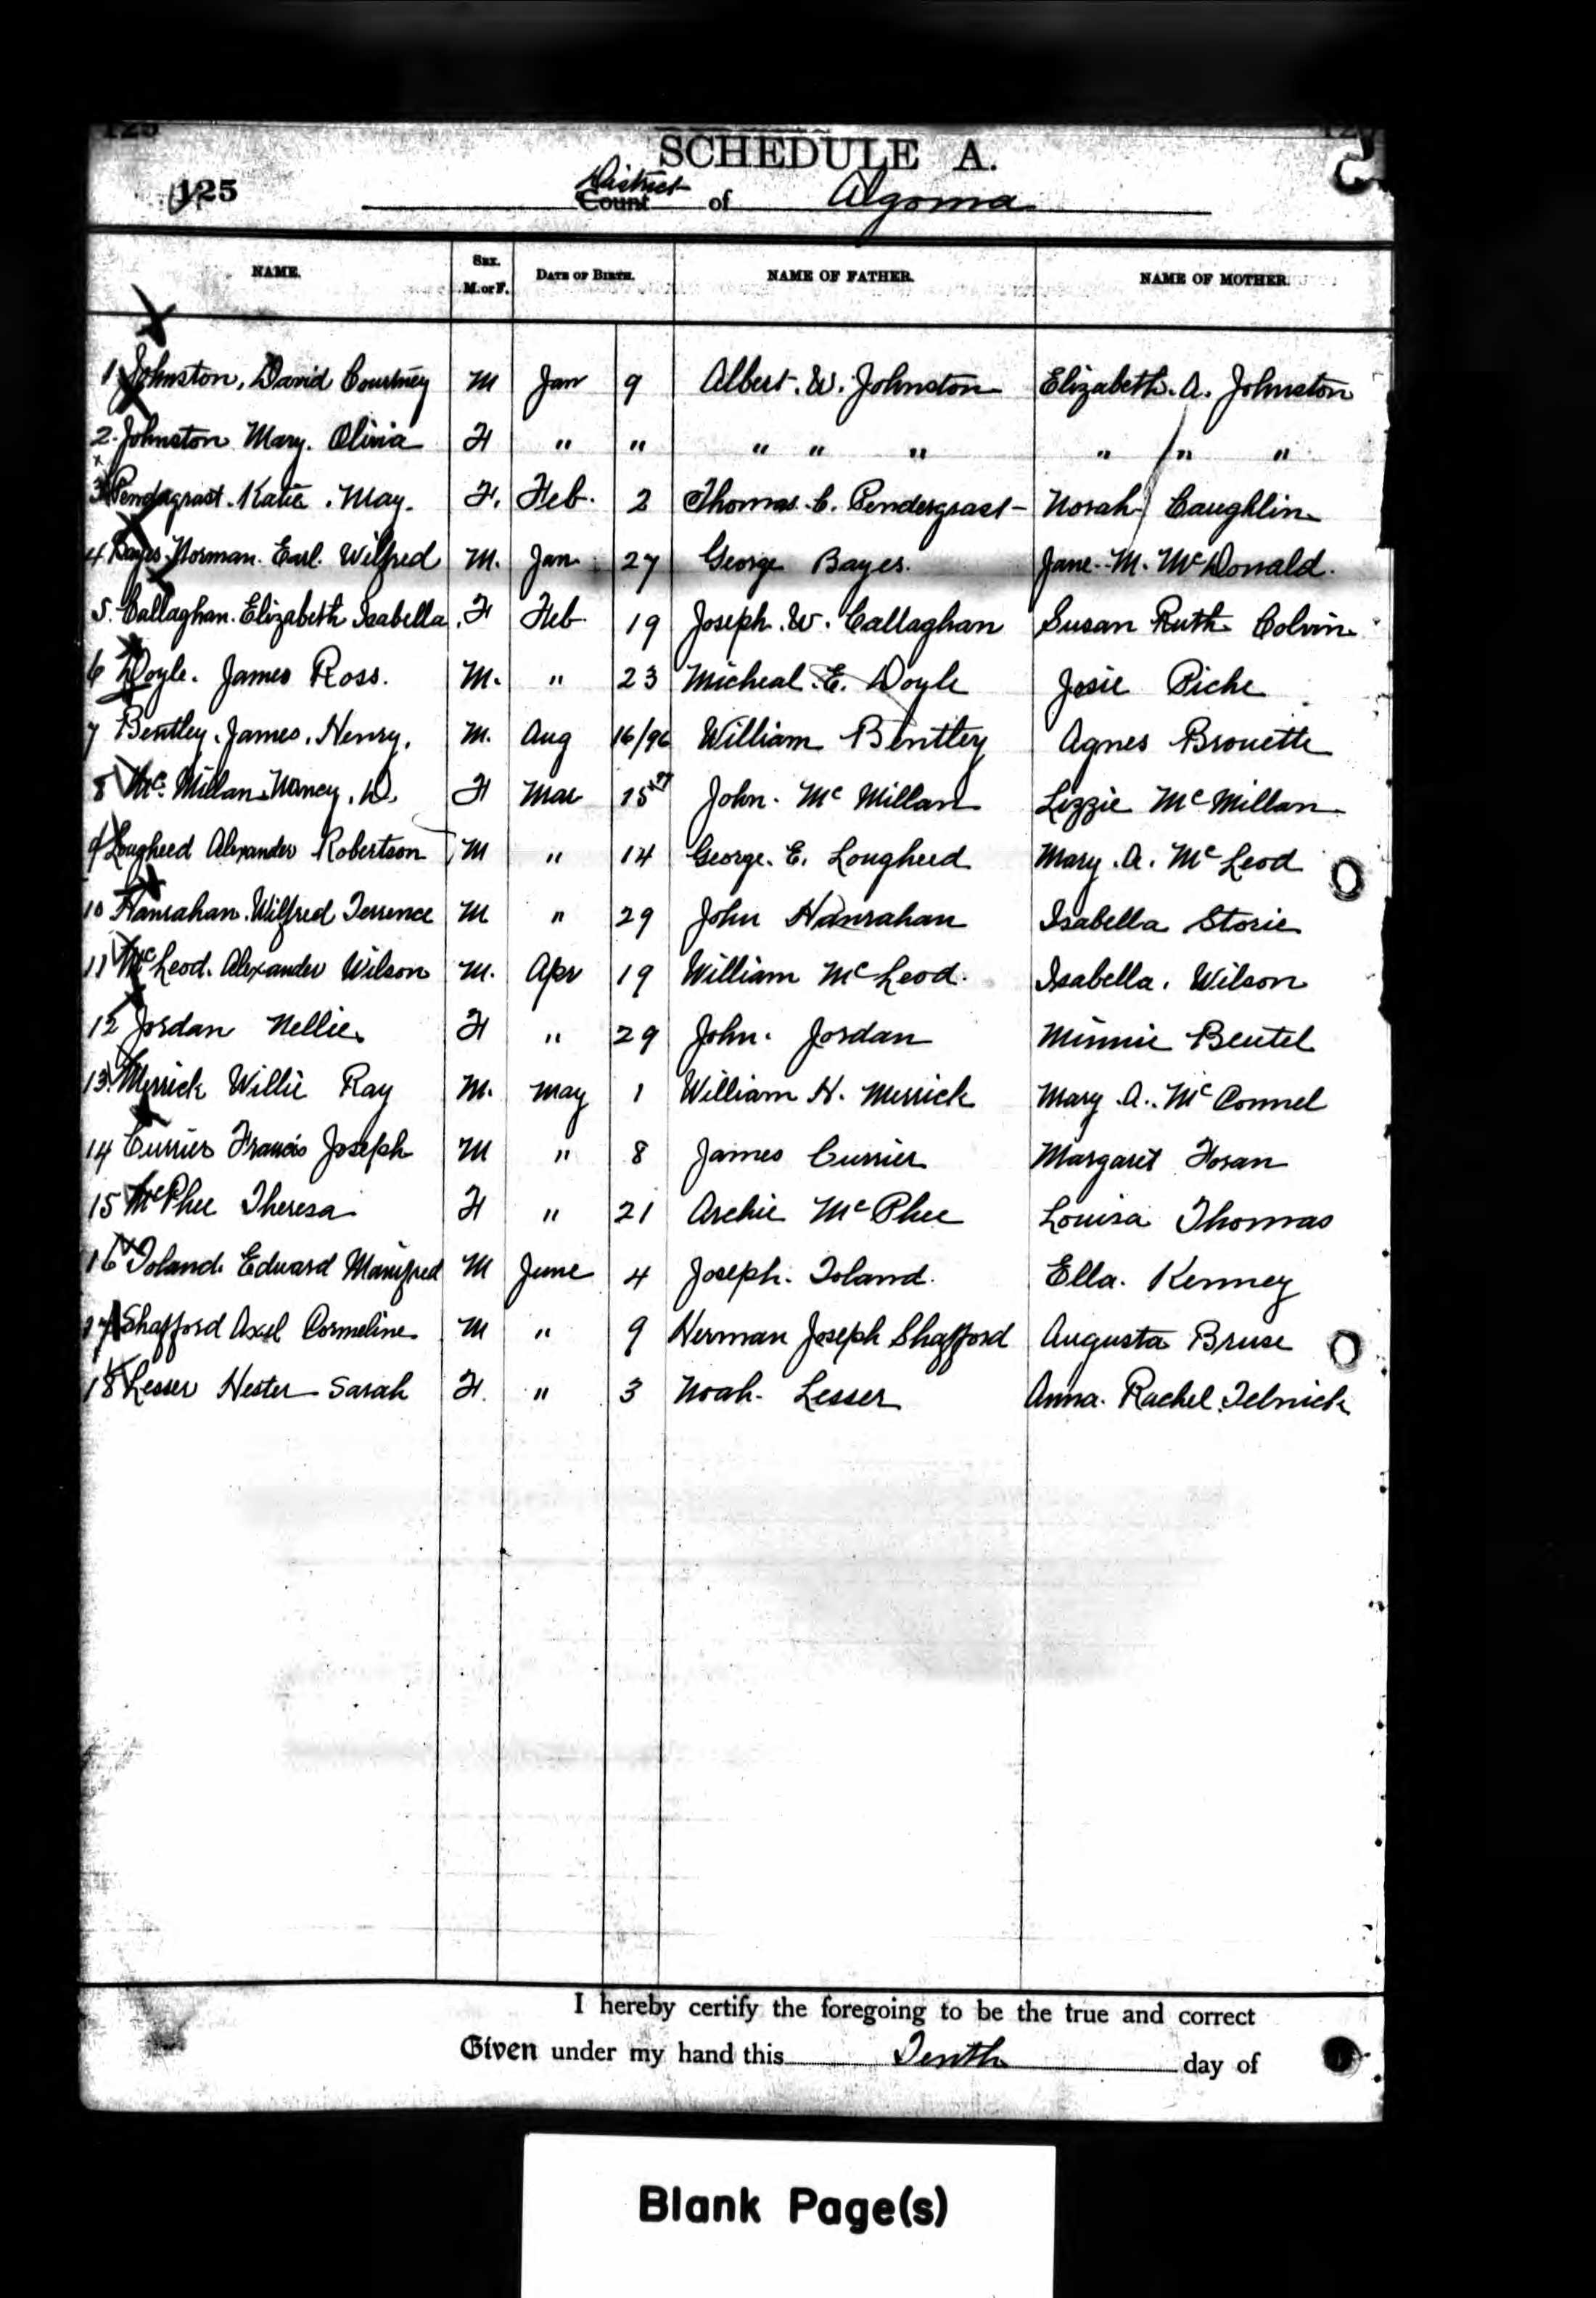 SCHEDULE A.
125 District
Count of Algoma
NAME. SEX. M. or F. DATE OF BIRTH. NAME OF FATHER. NAME OF MOTHER.
1 Johnston, David Courtney M Jan 9 Albert. W. Johnston Elizabeth. A. Johnston
2. Johnston Mary. Olivia F " " " " " " " "
3 Pendergrast. Katie. May. F. Feb. 2 Thomas. C. Pendergrast Norah Caughlin
4 Bayes Norman. Earl. Wilfred M. Jan 27 George Bayes. Jane. M. McDonald.
5. Callaghan. Elizabeth Isabella. F Feb. 19 Joseph. W. Callaghan Susan Ruth Colvin
6 Doyle. James Ross. M. " 23 Micheal. E. Doyle Josie Piche
7 Bentley. James. Henry. M. Aug 16/96 William Bentley Agnes Brouette
8 Mc Millan Nancy. D. F Mar 15 John. Mc Millan Lizzie Mc Millan
9 Lougheed Alexander Robertson M " 14 George. E. Lougheed Mary. A. Mc Leod
10 Hanrahan. Wilfred Terrence M " 29 John Hanrahan Isabella Storie
11 Mc Leod. Alexander Wilson M. Apr 19 William Mc Leod. Isabella. Wilson
12 Jordan Nellie F " 29 John. Jordan Minnie Beutel
13. Merrick Willie Ray M. May 1 William H. Merrick Mary. A. Mc Connel
14 Currier Francis Joseph M " 8 James Currier Margaret Foran
15 McPhee Theresa F " 21 Archie Mc Phee Louisa Thomas
16 Toland. Edward Manifred M June 4 Joseph. Toland. Ella. Kenney
17 Shafford Axel Cormeline M " 9 Herman Joseph Shafford Augusta Bruse
18 Lesser Hester Sarah F. " 3 Noah. Lesser Anna. Rachel Telnick
I hereby certify the foregoing to be the true and correct
Given under my hand this Tenth day of
Blank Page(s)